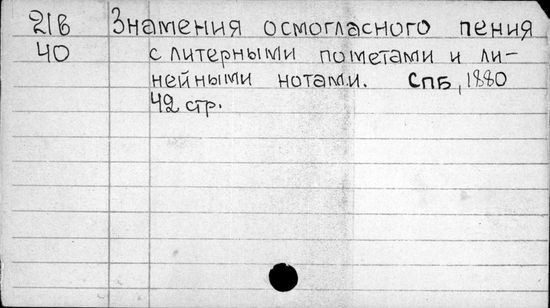 21в Знамения осмогласного пения
40 с литерными пометами и ли-
нейными нотами. СПБ, 1880
42 стр.